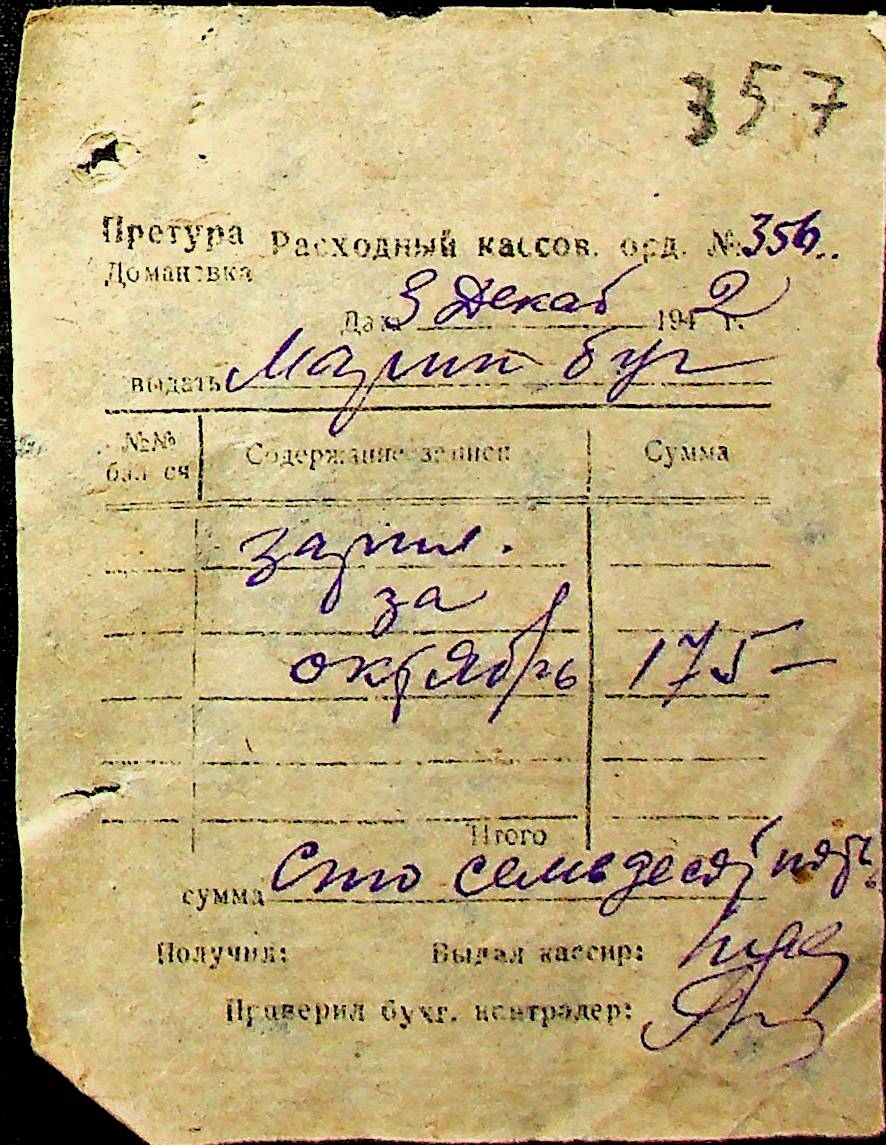 357
Претура Расходный кассов. орд. № 356
Доманевка
Дата 3 Декаб 1942 г.
выдать буг
№№ Содержание записи Сумма
бал сч
зарпл.
за
октябрь 175 —
Итого
сумма Сто семьдесят пять
Получил: Выдал кассир:
Праверил бухг. контралер: